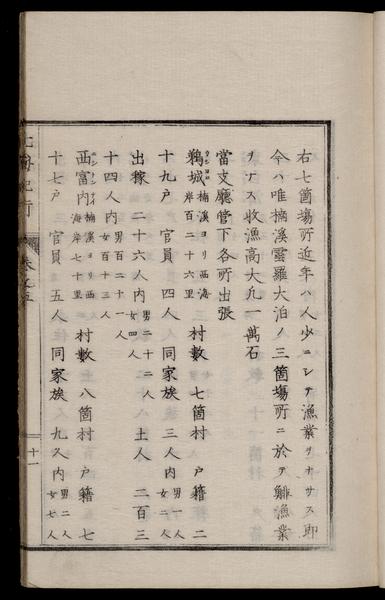 右七箇塲所近年ハ人少ニシテ漁業ヲナサス即
今ハ唯楠溪雲羅大泊ノ三箇塲所ニ於テ鯡漁業
ヲナス收漁高大凡一萬石
當支廳管下各所出張
鵜城 楠溪ヨリ西海岸百二十六里 村數 七箇村 戸籍 二
十九戸 官員 四人 同家族 三人内 男一人 女二人
出稼 二十六人内 男二十二人 女四人 土人 二百三
十四人内 男百二十一人 女百十三人
西富内 楠溪ヨリ西海岸七十里 村數 八箇村 戸籍 七
十七戸 官員 五人 同家族 九人内 男二人 女七人
北海紀行 巻之五 十一